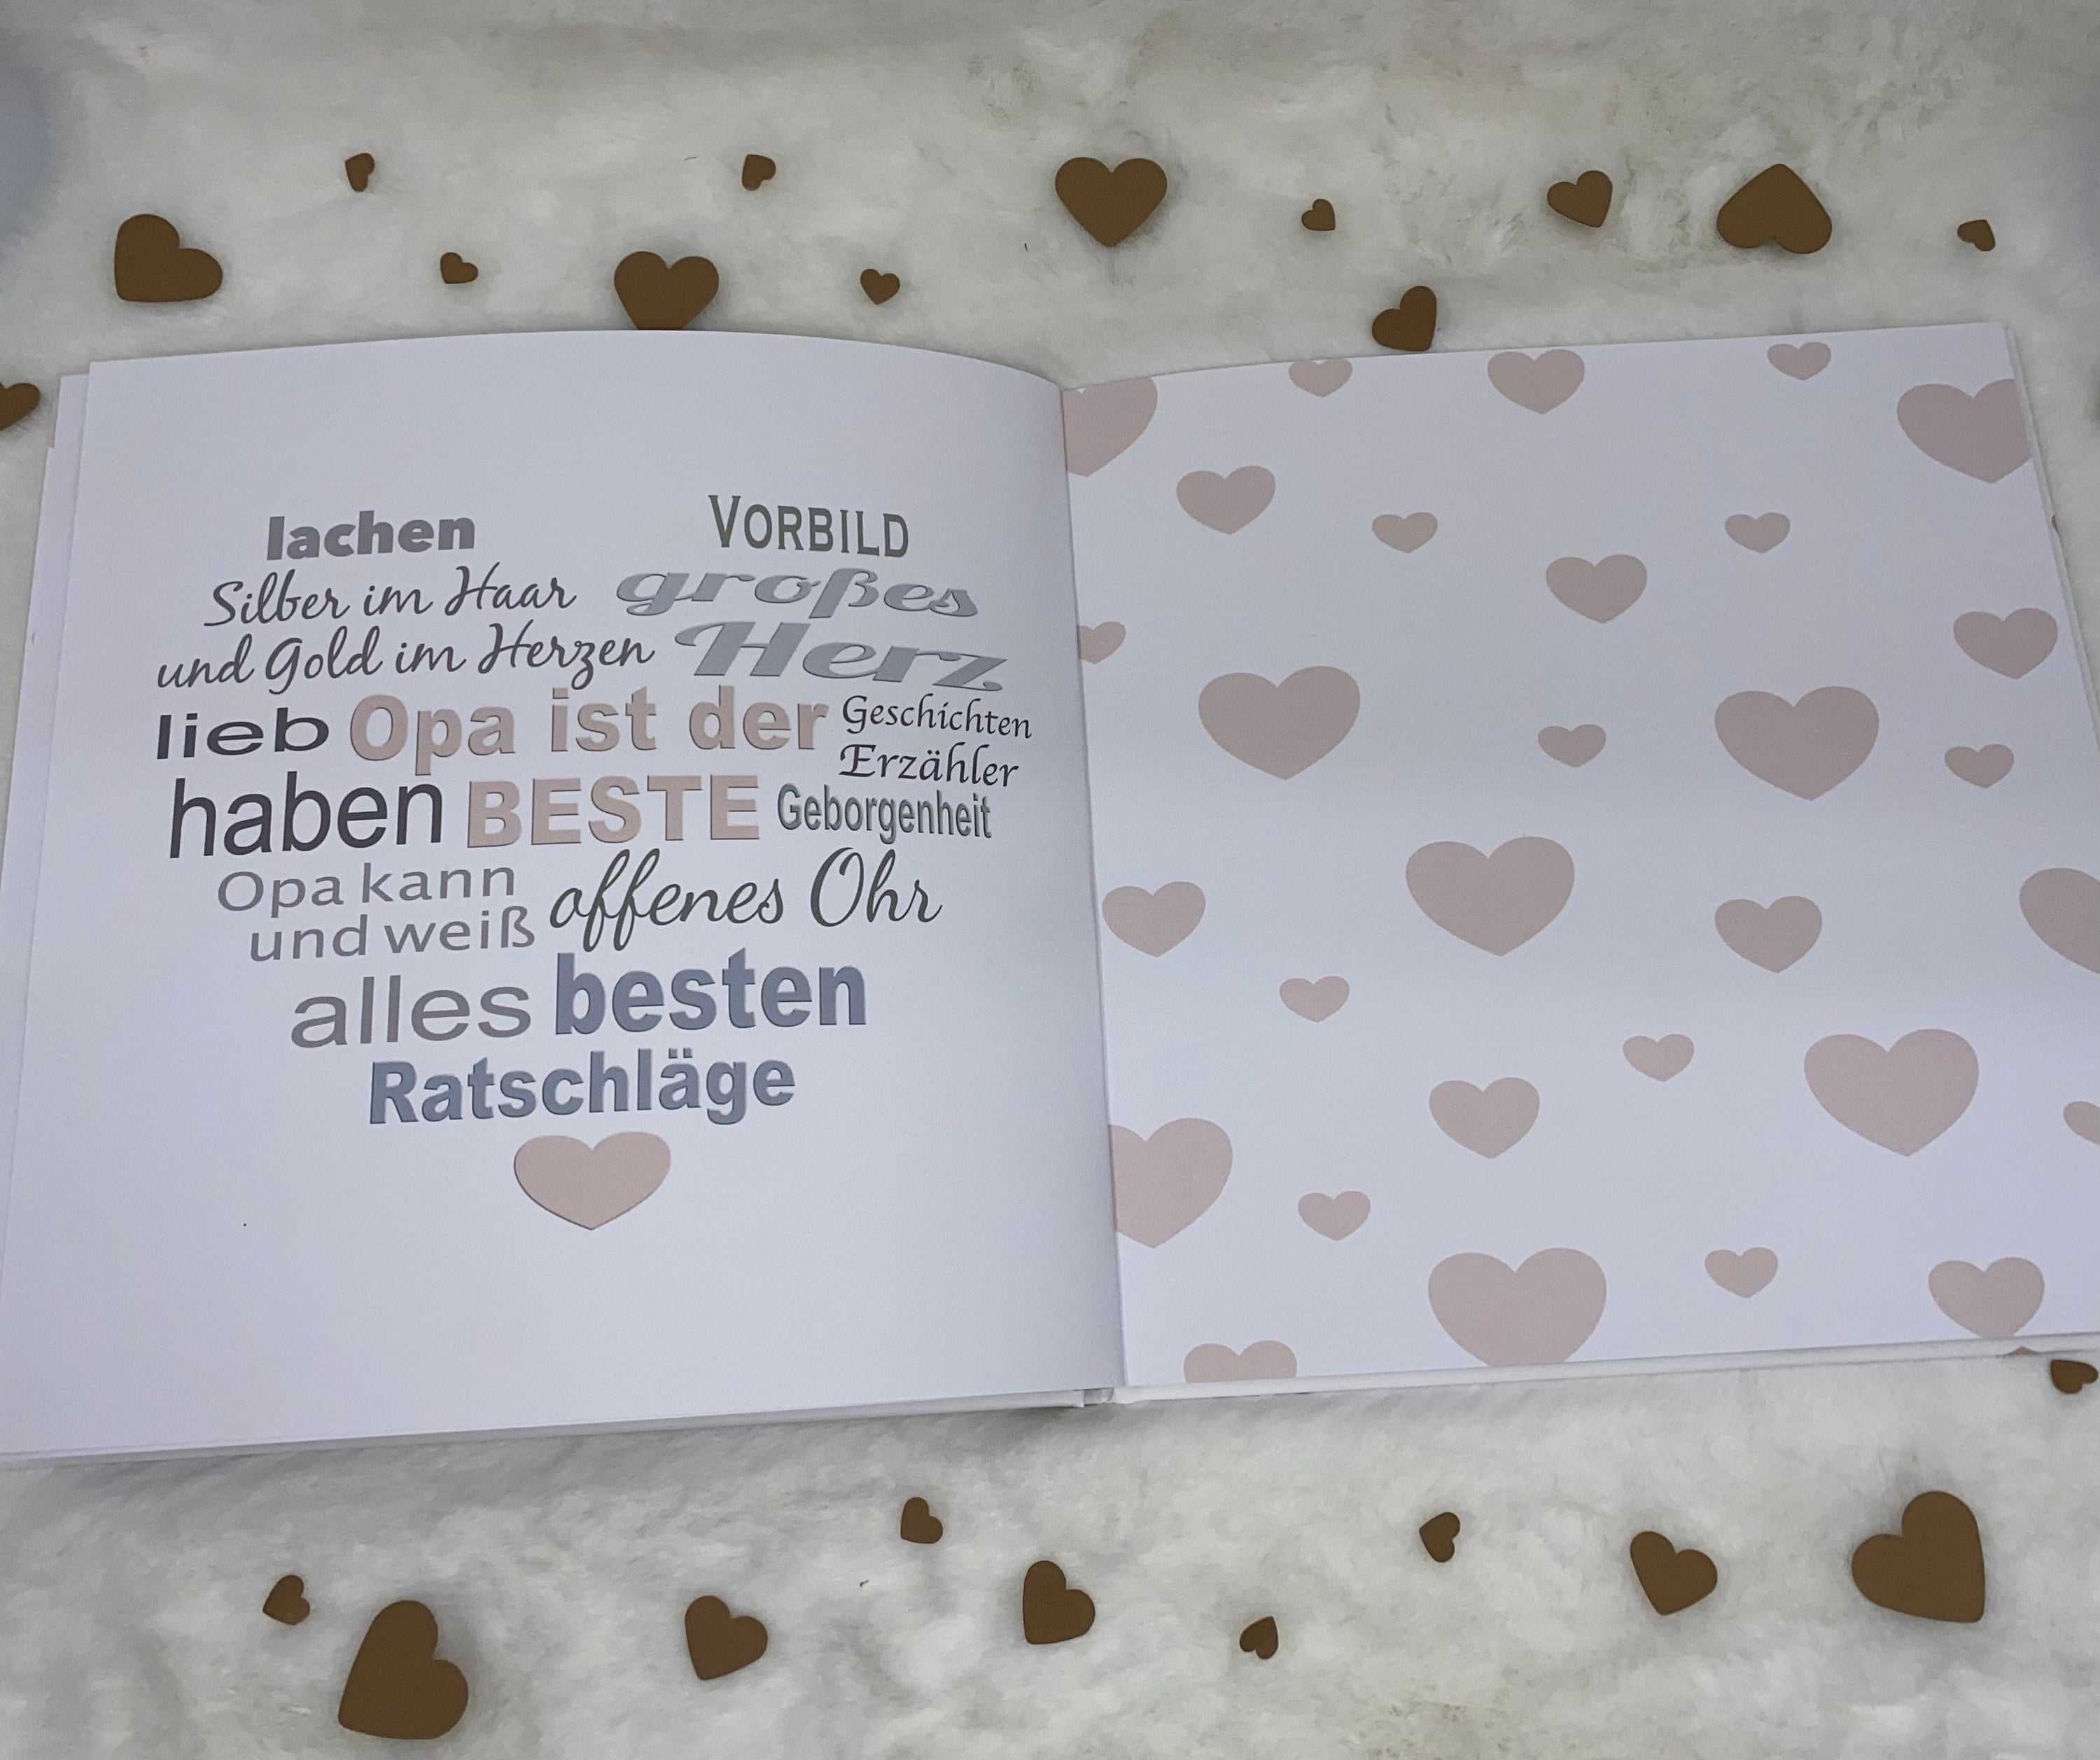 lachen VORBILD
Silber im Haar großes
und Gold im Herzen Herz
lieb Opa ist der Geschichten
Erzähler
haben BESTE Geborgenheit
Opa kann offenes Ohr
und weiß
alles besten
Ratschläge